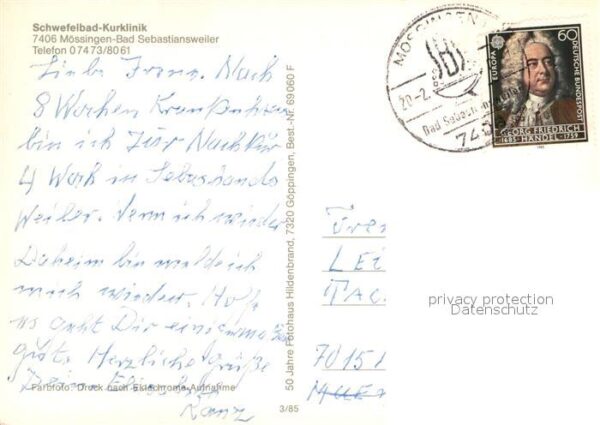 Schwefelbad-Kurklinik
7406 Mössingen-Bad Sebastiansweiler
Telefon 07473/8061
Liebe Irene. Nach
8 Wochen Krankenhaus
bin ich zur Nachkur
4 Woch in Sebastians
Weiler. Wenn ich wieder
Daheim bin melde ich
mich wieder. Hoffe
es geht Dir einigermaßen
gut. Herzliche Grüße
Deine Elisabeth
Kanz
Farbfoto: Druck nach Ektachrome-Aufnahme
3/85
50 Jahre Fotohaus Hildenbrand, 7320 Göppingen, Best.-Nr. 69060 F
MÖSSINGEN
20.-2.
Bad Sebastiansweiler
74
EUROPA
60
DEUTSCHE BUNDESPOST
GEORG FRIEDRICH
1685 · HÄNDEL · 1759
LEI
TAC
privacy protection
Datenschutz
7015